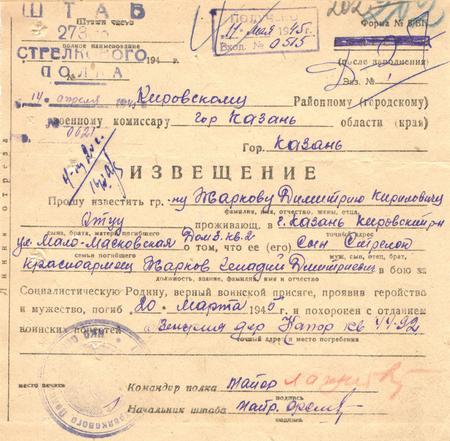 ШТАБ
Штамп части
273
полное наименование
СТРЕЛКОВОГО
ПОЛКА
194
ПОЛУЧЕНО
11 мая 1945 г.
Вход. № 0515
202
Форма №
(после заполнения)
Экз. №
14 апреля 194 Кировскому Районному (городскому)
№ 0021
военному комиссару гор Казань области (края)
Гор. Казань
ИЗВЕЩЕНИЕ
Прошу известить гр-ну Жаркову Димитрию Кириловичу
фамилия, имя, отчество, жены, отца,
Отцу проживающ. в г. Казань Кировский р-н
сына, брата, матери погибшего
точный адрес
ул Мало-Московская Дом 3. кв. 2 о том, что ее (его) сын Стрелок
семья погибшего
муж, сын, отец, брат,
красноармеец Жарков Генадий Димитриевич в бою за
должность, звание, фамилия, имя и отчество
Социалистическую Родину, верный воинской присяге, проявив геройство
и мужество, погиб 20 марта 1945 и похоронен с отданием
воинских почестей Венгрия дер Напор кв 4492
точный адрес и место погребения
место печати
Командир полка майор
подпись
Начальник штаба майор
подпись
Линия отреза